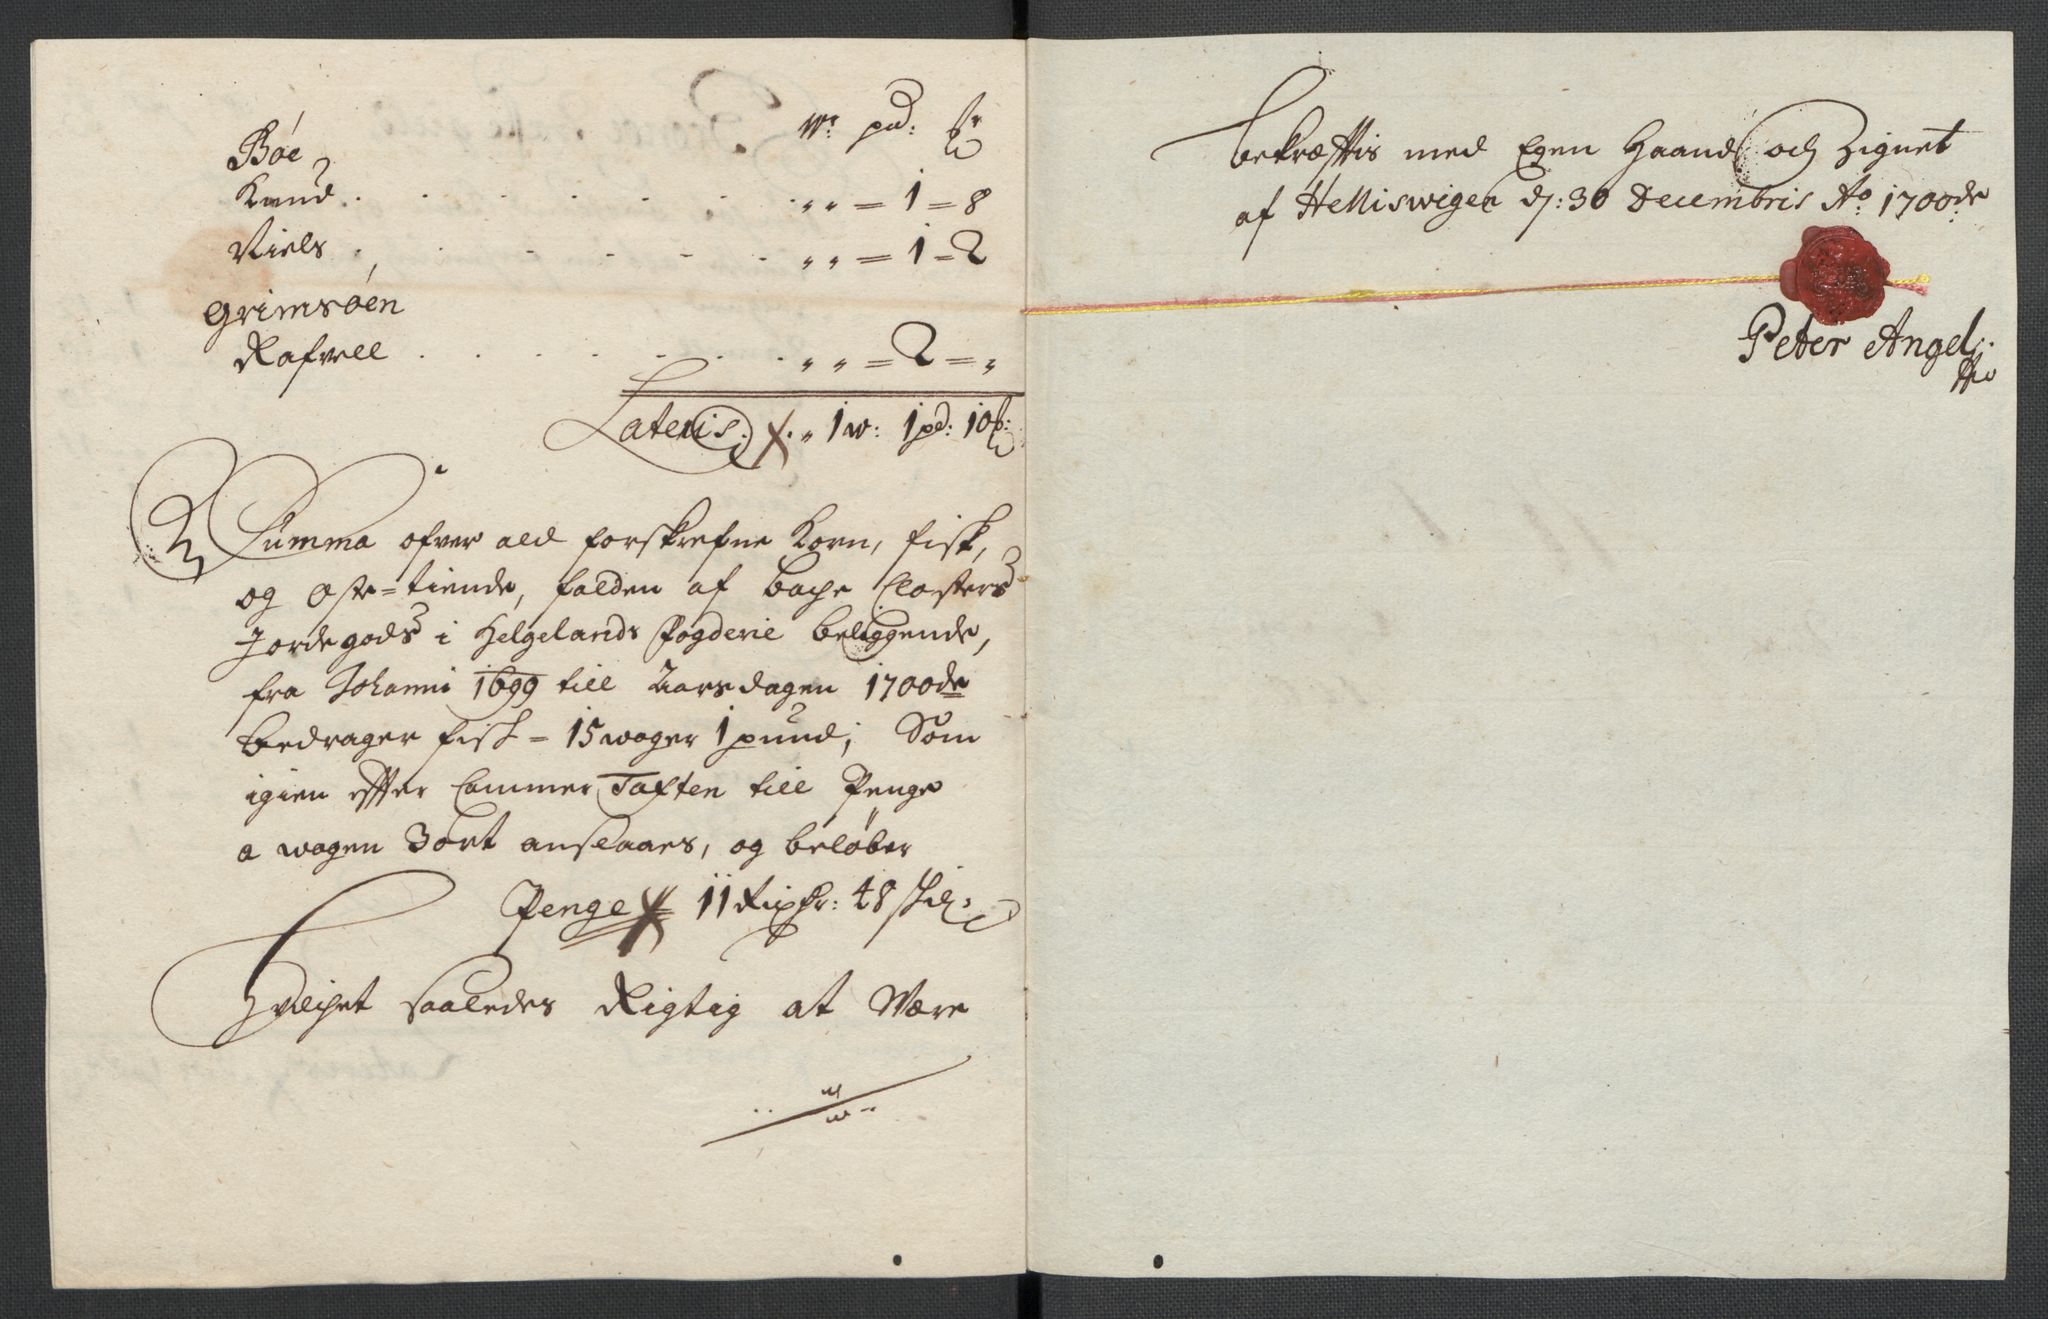 W: pd: ℔r
Bøe
Knud . . . . . . „ „ = 1 = 8
Niels . . . . . . „ „ = 1 = 2
Grimsøen
Rafvell . . . . . . „ „ = 2 = „
Lateris: „ 1 w: 1 pd: 10 ℔:
Summa ofver ald forskrefne Korn, fisk,
og Oste=tiende, falden af bache Closters
Jordegods i Helgelands fogderie beliggende,
fra Johanni 1699 till Aarsdagen 1700de
bedrager fisk = 15 woger 1 pund; Som
igien effter Cammer Taxten till Penge
a wogen 3 ort anslaaes, og beløber
Penge 11 Rixdr: 48 skil:
Hvilchet saaledes Rigtig at Være
bekræfftis med Egen Haand och Zignet
af Helliswigen d: 30 Decembris Ao: 1700de
Peter Angel: